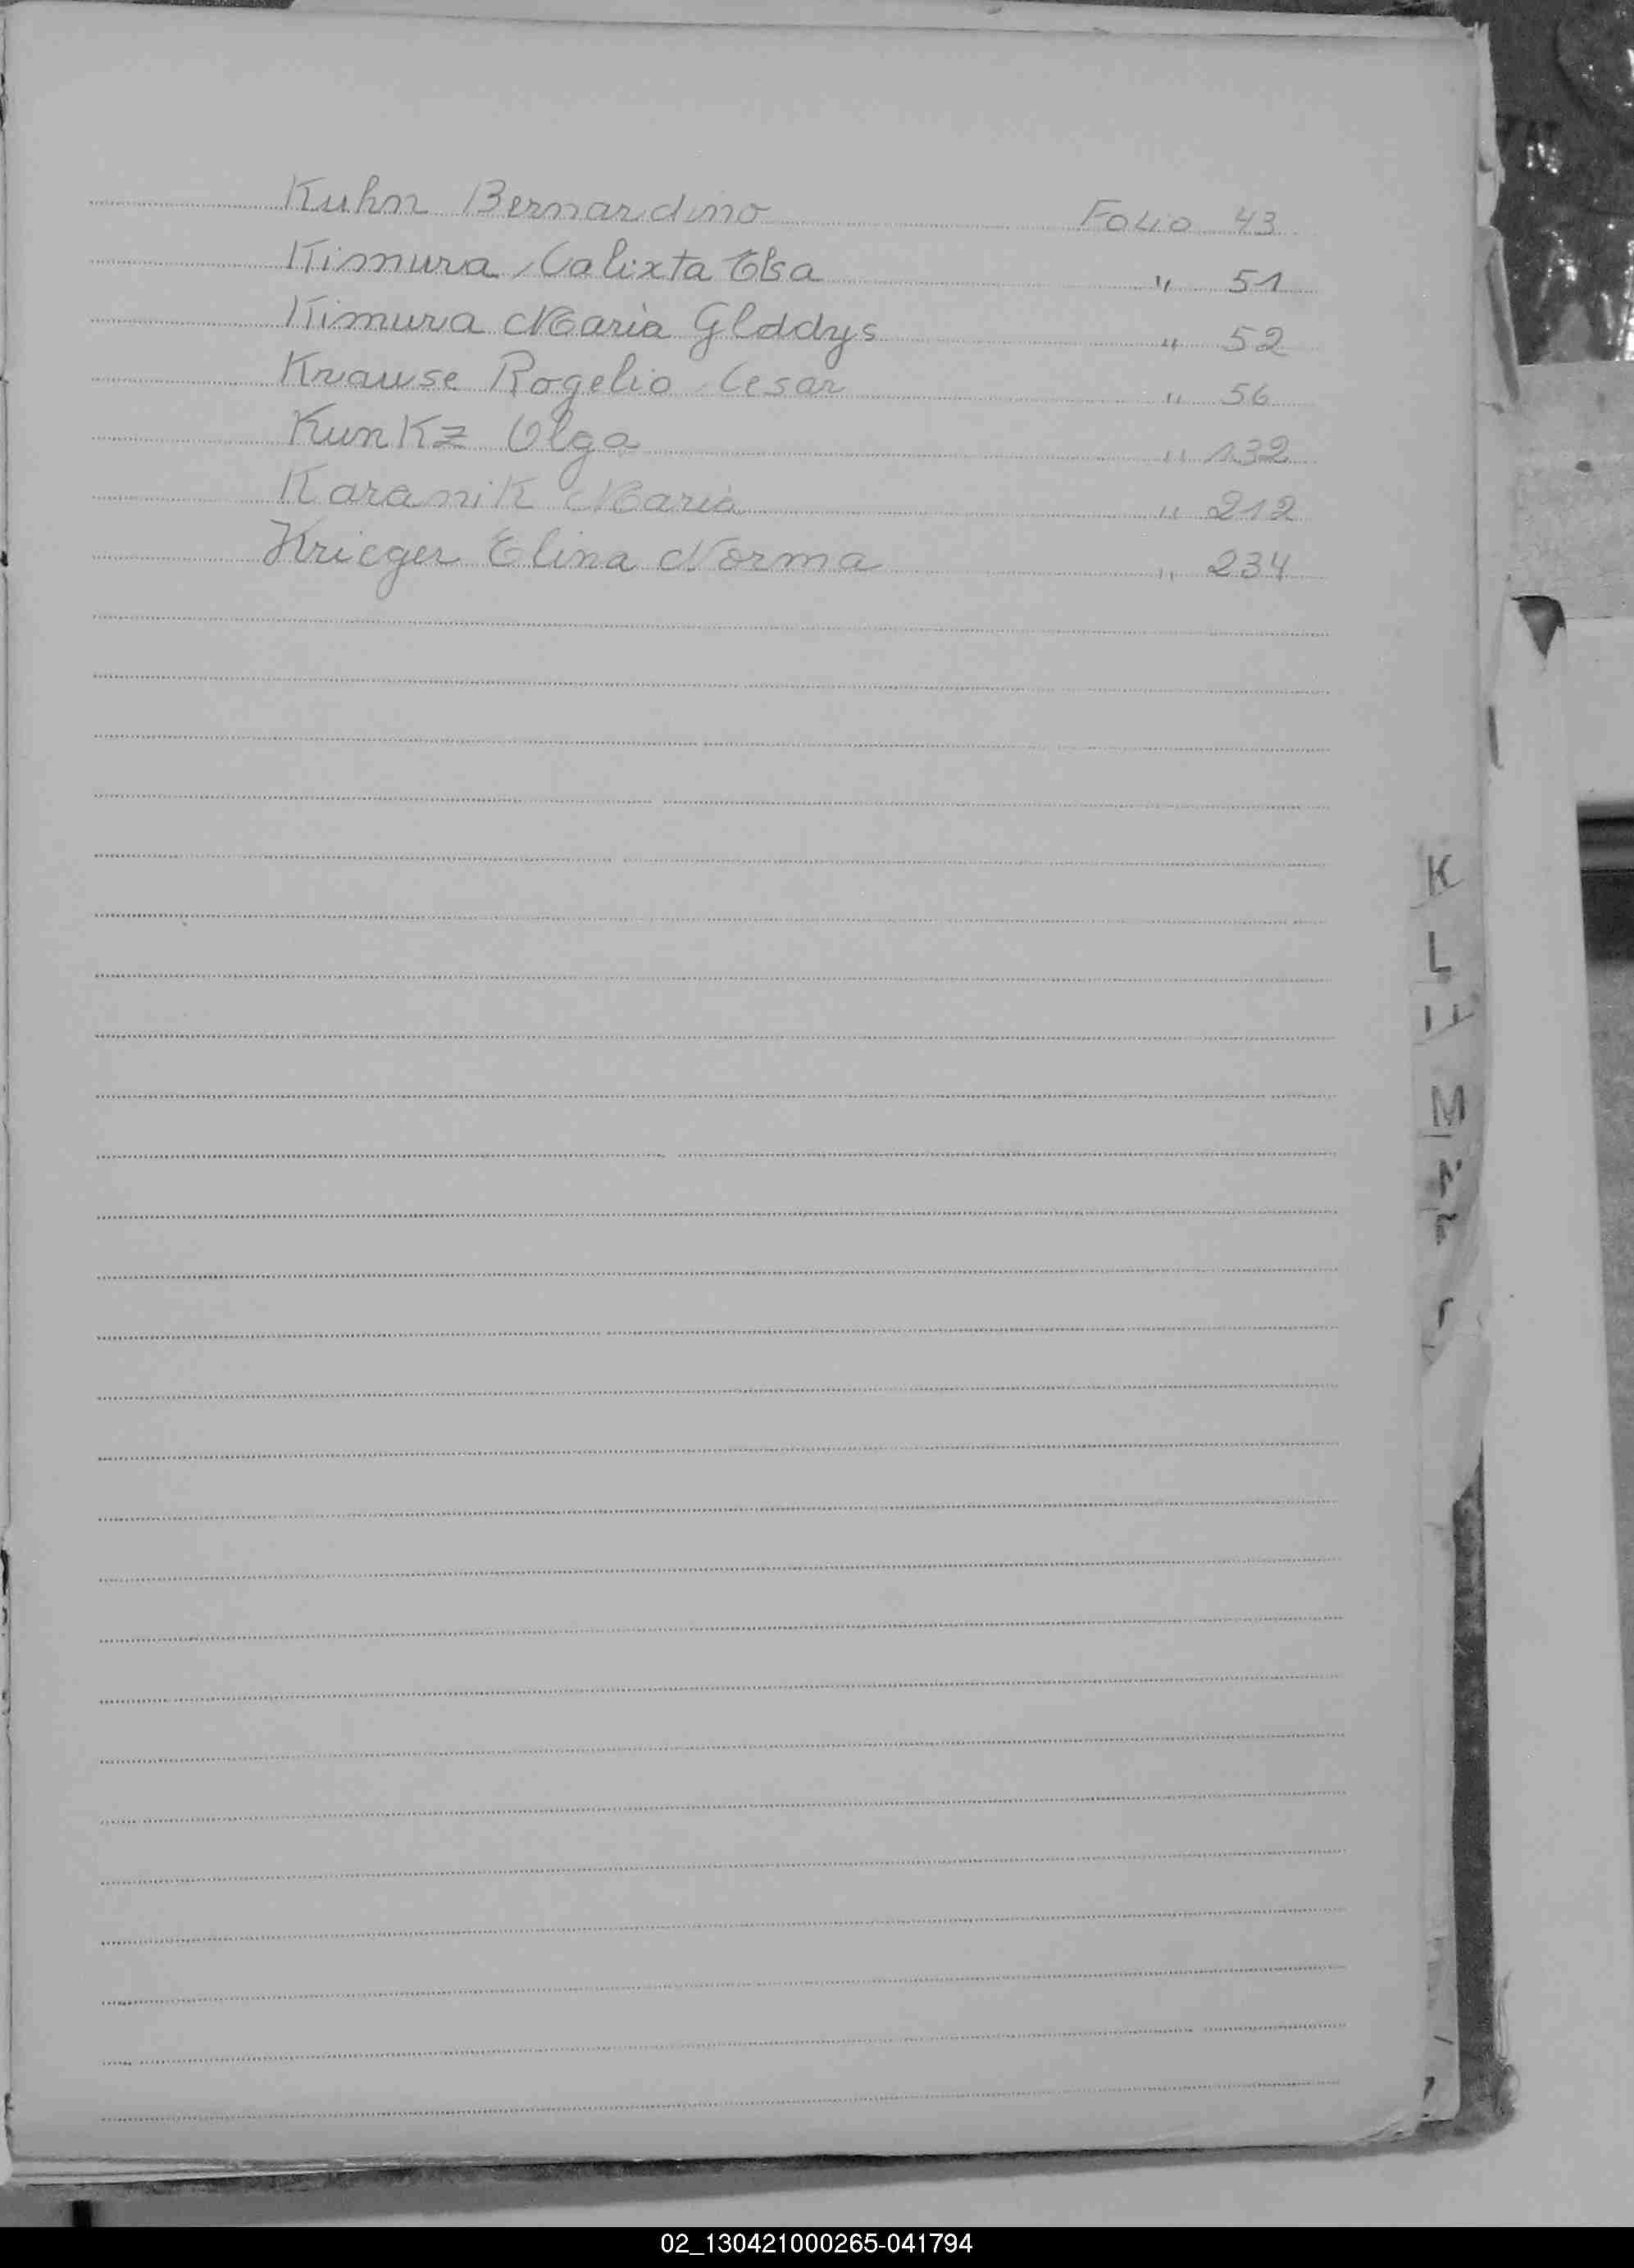 Kuhn Bernardino Folio 43
Kimura Calixta Elsa " 51
Kimura Maria Glddys " 52
Krause Rogelio Cesar " 56
KunKz Olga " 132
KaraniK Maria " 212
Krieger Elina Norma " 234
K
L
M
02_130421000265-041794